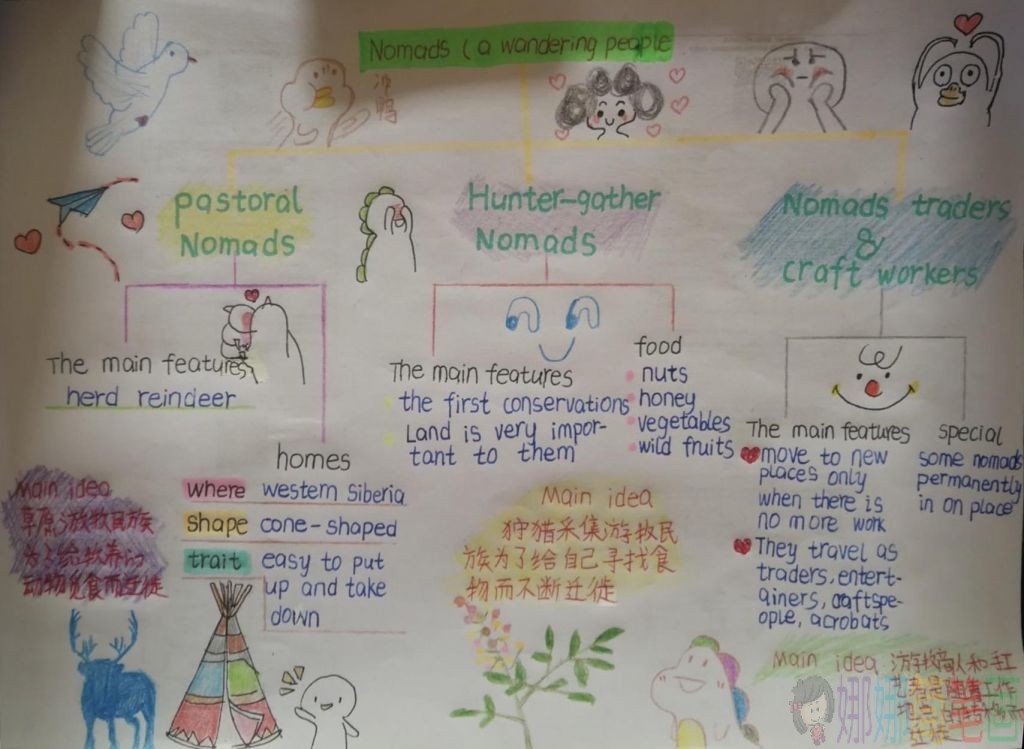 Nomads (a wandering people
鸭
pastoral
Nomads
Hunter-gather
Nomads
Nomads traders
&
craft workers
The main features
herd reindeer
homes
where western Siberia
shape cone-shaped
trait easy to put
up and take
down
Main idea
草原游牧民族
为了给牧养的
动物觅食而迁徙
The main features
the first conservations
Land is very impor-
tant to them
food
nuts
honey
vegetables
wild fruits
Main idea
狩猎采集游牧民
族为了给自己寻找食
物而不断迁徙
The main features
move to new
places only
when there is
no more work
They travel as
traders, entert-
ainers, craftspe-
ople, acrobats
special
some nomads
permanently
in on place
Main idea:游牧商人和手工
艺者是随着工作
地点
迁徙
娜娜